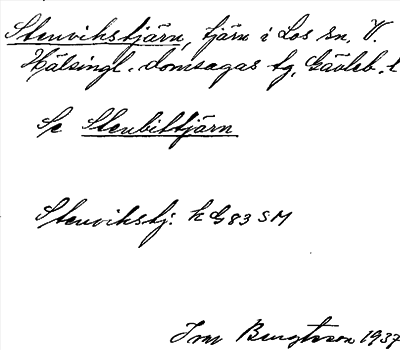 Stenvikstjärn, tjärn i Los sn, V.
Hälsingl. domsagas tg, Gävleb. l
Se Stenbittjärn
Stenvikstj: k G83 SM
Bengtsson 1937